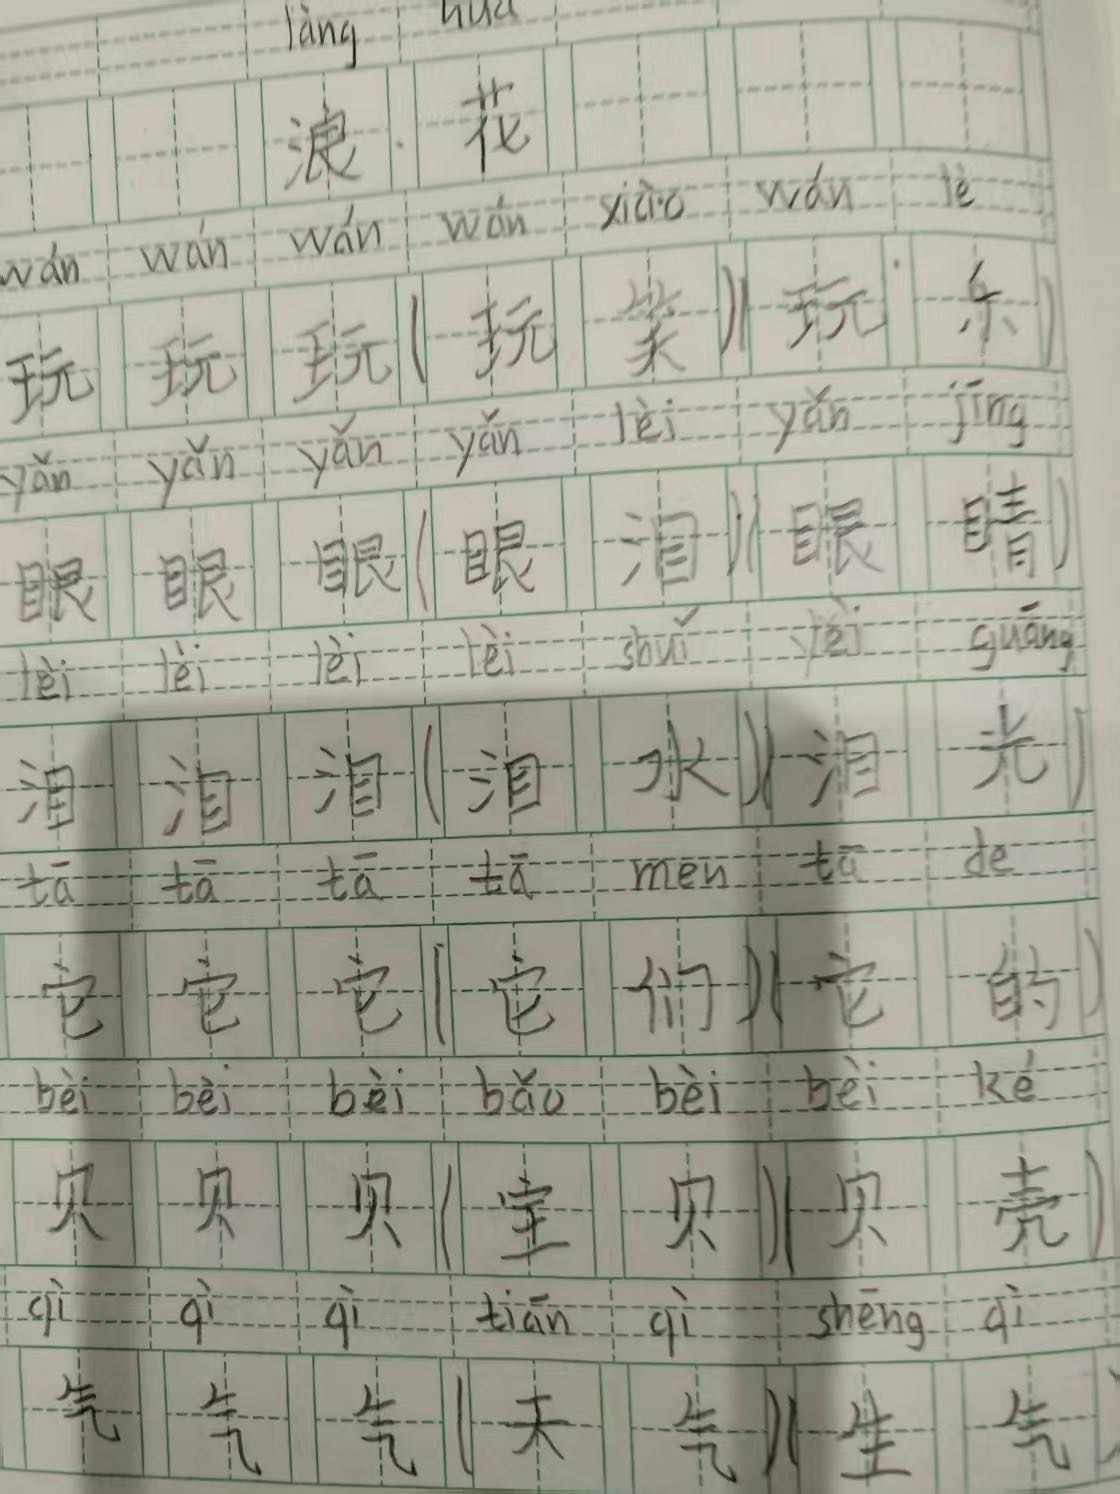 làng hua
浪 花
wán wán wán wán xiào wán lè
玩 玩 玩 ( 玩 笑 ) ( 玩 乐 )
yǎn yǎn yǎn yǎn lèi yǎn jīng
眼 眼 眼 ( 眼 泪 ) ( 眼 睛 )
lèi lèi lèi lèi shuǐ lèi guāng
泪 泪 泪 ( 泪 水 ) ( 泪 光 )
tā tā tā tā men tā de
它 它 它 ( 它 们 ) ( 它 的 )
bèi bèi bèi bǎo bèi bèi ké
贝 贝 贝 ( 宝 贝 ) ( 贝 壳 )
qì qì qì tiān qì shēng qì
气 气 气 ( 天 气 ) ( 生 气 )